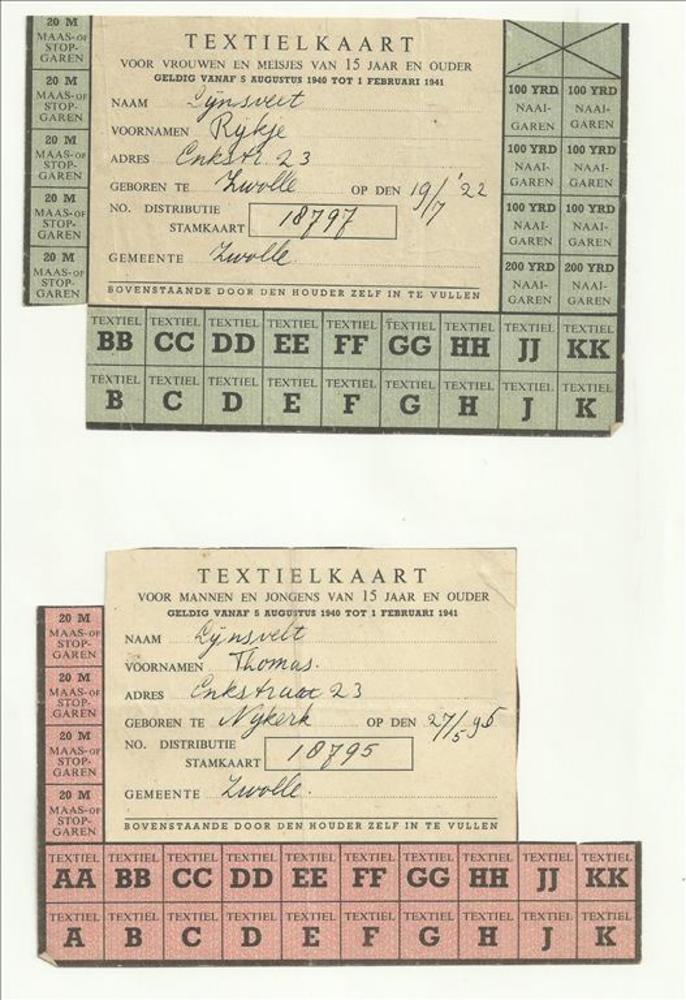 TEXTIELKAART
VOOR VROUWEN EN MEISJES VAN 15 JAAR EN OUDER
GELDIG VANAF 5 AUGUSTUS 1940 TOT 1 FEBRUARI 1941
NAAM Lijnsvelt
VOORNAMEN Rijkje
ADRES Enkstr. 23
GEBOREN TE Zwolle OP DEN 19/7 '22
NO. DISTRIBUTIE
STAMKAART 18797
GEMEENTE Zwolle.
BOVENSTAANDE DOOR DEN HOUDER ZELF IN TE VULLEN
20 M
MAAS-OF
STOP-
GAREN
20 M
MAAS-OF
STOP-
GAREN
20 M
MAAS-OF
STOP-
GAREN
20 M
MAAS-OF
STOP-
GAREN
20 M
MAAS-OF
STOP-
GAREN
100 YRD 100 YRD
NAAI- NAAI-
GAREN GAREN
100 YRD 100 YRD
NAAI- NAAI-
GAREN GAREN
100 YRD 100 YRD
NAAI- NAAI-
GAREN GAREN
200 YRD 200 YRD
NAAI- NAAI-
GAREN GAREN
TEXTIEL TEXTIEL TEXTIEL TEXTIEL TEXTIEL TEXTIEL TEXTIEL TEXTIEL TEXTIEL
BB CC DD EE FF GG HH JJ KK
TEXTIEL TEXTIEL TEXTIEL TEXTIEL TEXTIEL TEXTIEL TEXTIEL TEXTIEL TEXTIEL
B C D E F G H J K
TEXTIELKAART
VOOR MANNEN EN JONGENS VAN 15 JAAR EN OUDER
GELDIG VANAF 5 AUGUSTUS 1940 TOT 1 FEBRUARI 1941
NAAM Lijnsvelt
VOORNAMEN Thomas.
ADRES Enkstraat 23
GEBOREN TE Nijkerk OP DEN 27/5 95
NO. DISTRIBUTIE
STAMKAART 18795
GEMEENTE Zwolle.
BOVENSTAANDE DOOR DEN HOUDER ZELF IN TE VULLEN
20 M
MAAS-OF
STOP-
GAREN
20 M
MAAS-OF
STOP-
GAREN
20 M
MAAS-OF
STOP-
GAREN
20 M
MAAS-OF
STOP-
GAREN
TEXTIEL TEXTIEL TEXTIEL TEXTIEL TEXTIEL TEXTIEL TEXTIEL TEXTIEL TEXTIEL TEXTIEL
AA BB CC DD EE FF GG HH JJ KK
TEXTIEL TEXTIEL TEXTIEL TEXTIEL TEXTIEL TEXTIEL TEXTIEL TEXTIEL TEXTIEL TEXTIEL
A B C D E F G H J K